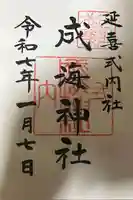 延喜式内社
成海神社
令和七年一月七日